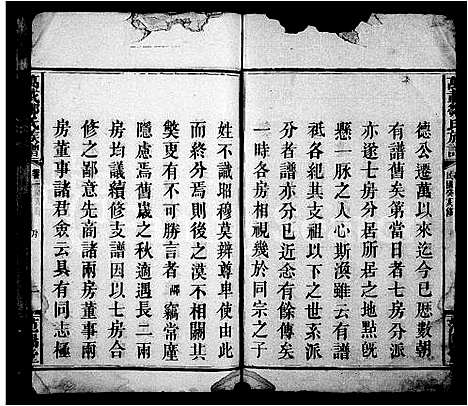 德公遷萬以來迄今已歷數朝
於斯矣舊矣第當日者七房分派
亦遂七房分居所居之地點分
懸一脉之人心斯渙雖云有譜
各祀其支祖以故向之世系派
分者譜亦分已近念有餘傳矣
七房各房相視幾於同宗之子
姓不識昭穆莫辨尊卑使由此
而不終焉則後之漠不相關其
獘更有不可勝言者 竊常廑
隱慮焉舊嵗之秋適遇長二兩
房均議續修支譜因以七房合
修之鄙意先商諸兩房董事兩
房董事諸君僉云具有同志極